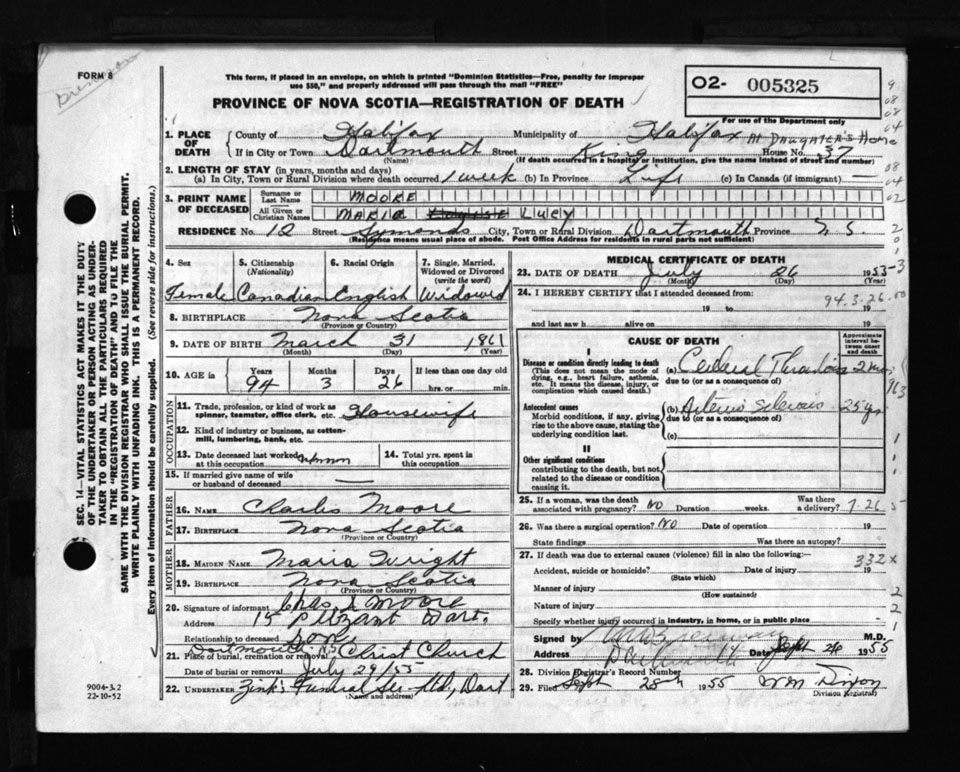 FORM 8
This form, if placed in an envelope, on which is printed "Dominion Statistics—Free, penalty for improper
use $50," and properly addressed will pass through the mail "FREE"
PROVINCE OF NOVA SCOTIA—REGISTRATION OF DEATH
O2- 005325
For use of the Department only
1. PLACE OF DEATH County of Halifax Municipality of Halifax At Daughter's Home
If in City or Town Dartmouth Street King House No. 37
(Name) (If death occurred in a hospital or institution, give the name instead of street and number)
2. LENGTH OF STAY (in years, months and days)
(a) In City, Town or Rural Division where death occurred 1 week (b) In Province Life (c) In Canada (if immigrant) —
3. PRINT NAME OF DECEASED Surname or Last Name MOORE
All Given or Christian Names MARIA Lucy
RESIDENCE No. 12 Street Symonds City, Town or Rural Division Dartmouth Province N.S.
(Residence means usual place of abode. Post Office Address for residents in rural parts not sufficient)
4. Sex 5. Citizenship (Nationality) 6. Racial Origin 7. Single, Married, Widowed or Divorced (write the word)
Female Canadian English Widowed
8. BIRTHPLACE Nova Scotia
(Province or Country)
9. DATE OF BIRTH March 31 1861
(Month) (Day) (Year)
10. AGE in Years Months Days If less than one day
94 3 26 hrs. or min.
OCCUPATION
11. Trade, profession, or kind of work as spinner, teamster, office clerk, etc. Housewife
12. Kind of industry or business, as cotton-mill, lumbering, bank, etc.
13. Date deceased last worked at this occupation 14. Total yrs. spent in this occupation
15. If married give name of wife or husband of deceased —
FATHER
16. NAME Charles Moore
17. BIRTHPLACE Nova Scotia
(Province or Country)
MOTHER
18. MAIDEN NAME Maria Wright
19. BIRTHPLACE Nova Scotia
(Province or Country)
20. Signature of informant Chas. L. Moore
Address 15 Pleasant Dart.
Relationship to deceased Son
Dartmouth N.S.
21. Place of burial, cremation or removal Christ Church
Date of burial or removal July 29/55
22. UNDERTAKER Zink's Funeral Ser. Ltd., Dart
(Name and address)
MEDICAL CERTIFICATE OF DEATH
23. DATE OF DEATH July 26 1955
(Month) (Day) (Year)
24. I HEREBY CERTIFY that I attended deceased from:
94.3.26.
19 to 19
and last saw h alive on 19
CAUSE OF DEATH
Approximate interval between onset and death
I
Disease or condition directly leading to death
(This does not mean the mode of dying, e.g., heart failure, asthenia, etc. It means the disease, injury, or complication which caused death.)
(a) Cerebral Thrombosis 2 mos
due to (or as a consequence of)
Antecedent causes
Morbid conditions, if any, giving rise to the above cause, stating the underlying condition last.
(b) Arterio Sclerosis 25 yrs
due to (or as a consequence of)
(c)
II
Other significant conditions
contributing to the death, but not related to the disease or condition causing it.
25. If a woman, was the death associated with pregnancy? No Duration weeks. Was there a delivery? 7.26.5
26. Was there a surgical operation? No Date of operation 19
State findings Was there an autopsy?
27. If death was due to external causes (violence) fill in also the following:—
332X
Accident, suicide or homicide? Date of injury 19
(State which)
Manner of injury
(How sustained)
Nature of injury
Specify whether injury occurred in industry, in home, or in public place
Signed by M.D.
Address Dartmouth Date Sept 26 1955
28. Division Registrar's Record Number
29. Filed Sept 28th 1955 Wm Dixon
Division Registrar
SEC. 14—VITAL STATISTICS ACT MAKES IT THE DUTY
OF THE UNDERTAKER OR PERSON ACTING AS UNDER-
TAKER TO OBTAIN ALL THE PARTICULARS REQUIRED
IN THE "REGISTRATION OF DEATH" AND TO FILE THE
SAME WITH THE DIVISION REGISTRAR WHO SHALL ISSUE THE BURIAL PERMIT.
WRITE PLAINLY WITH UNFADING INK. THIS IS A PERMANENT RECORD.
Every item of information should be carefully supplied. (See reverse side for instructions.)
9004-3.2
22-10-52